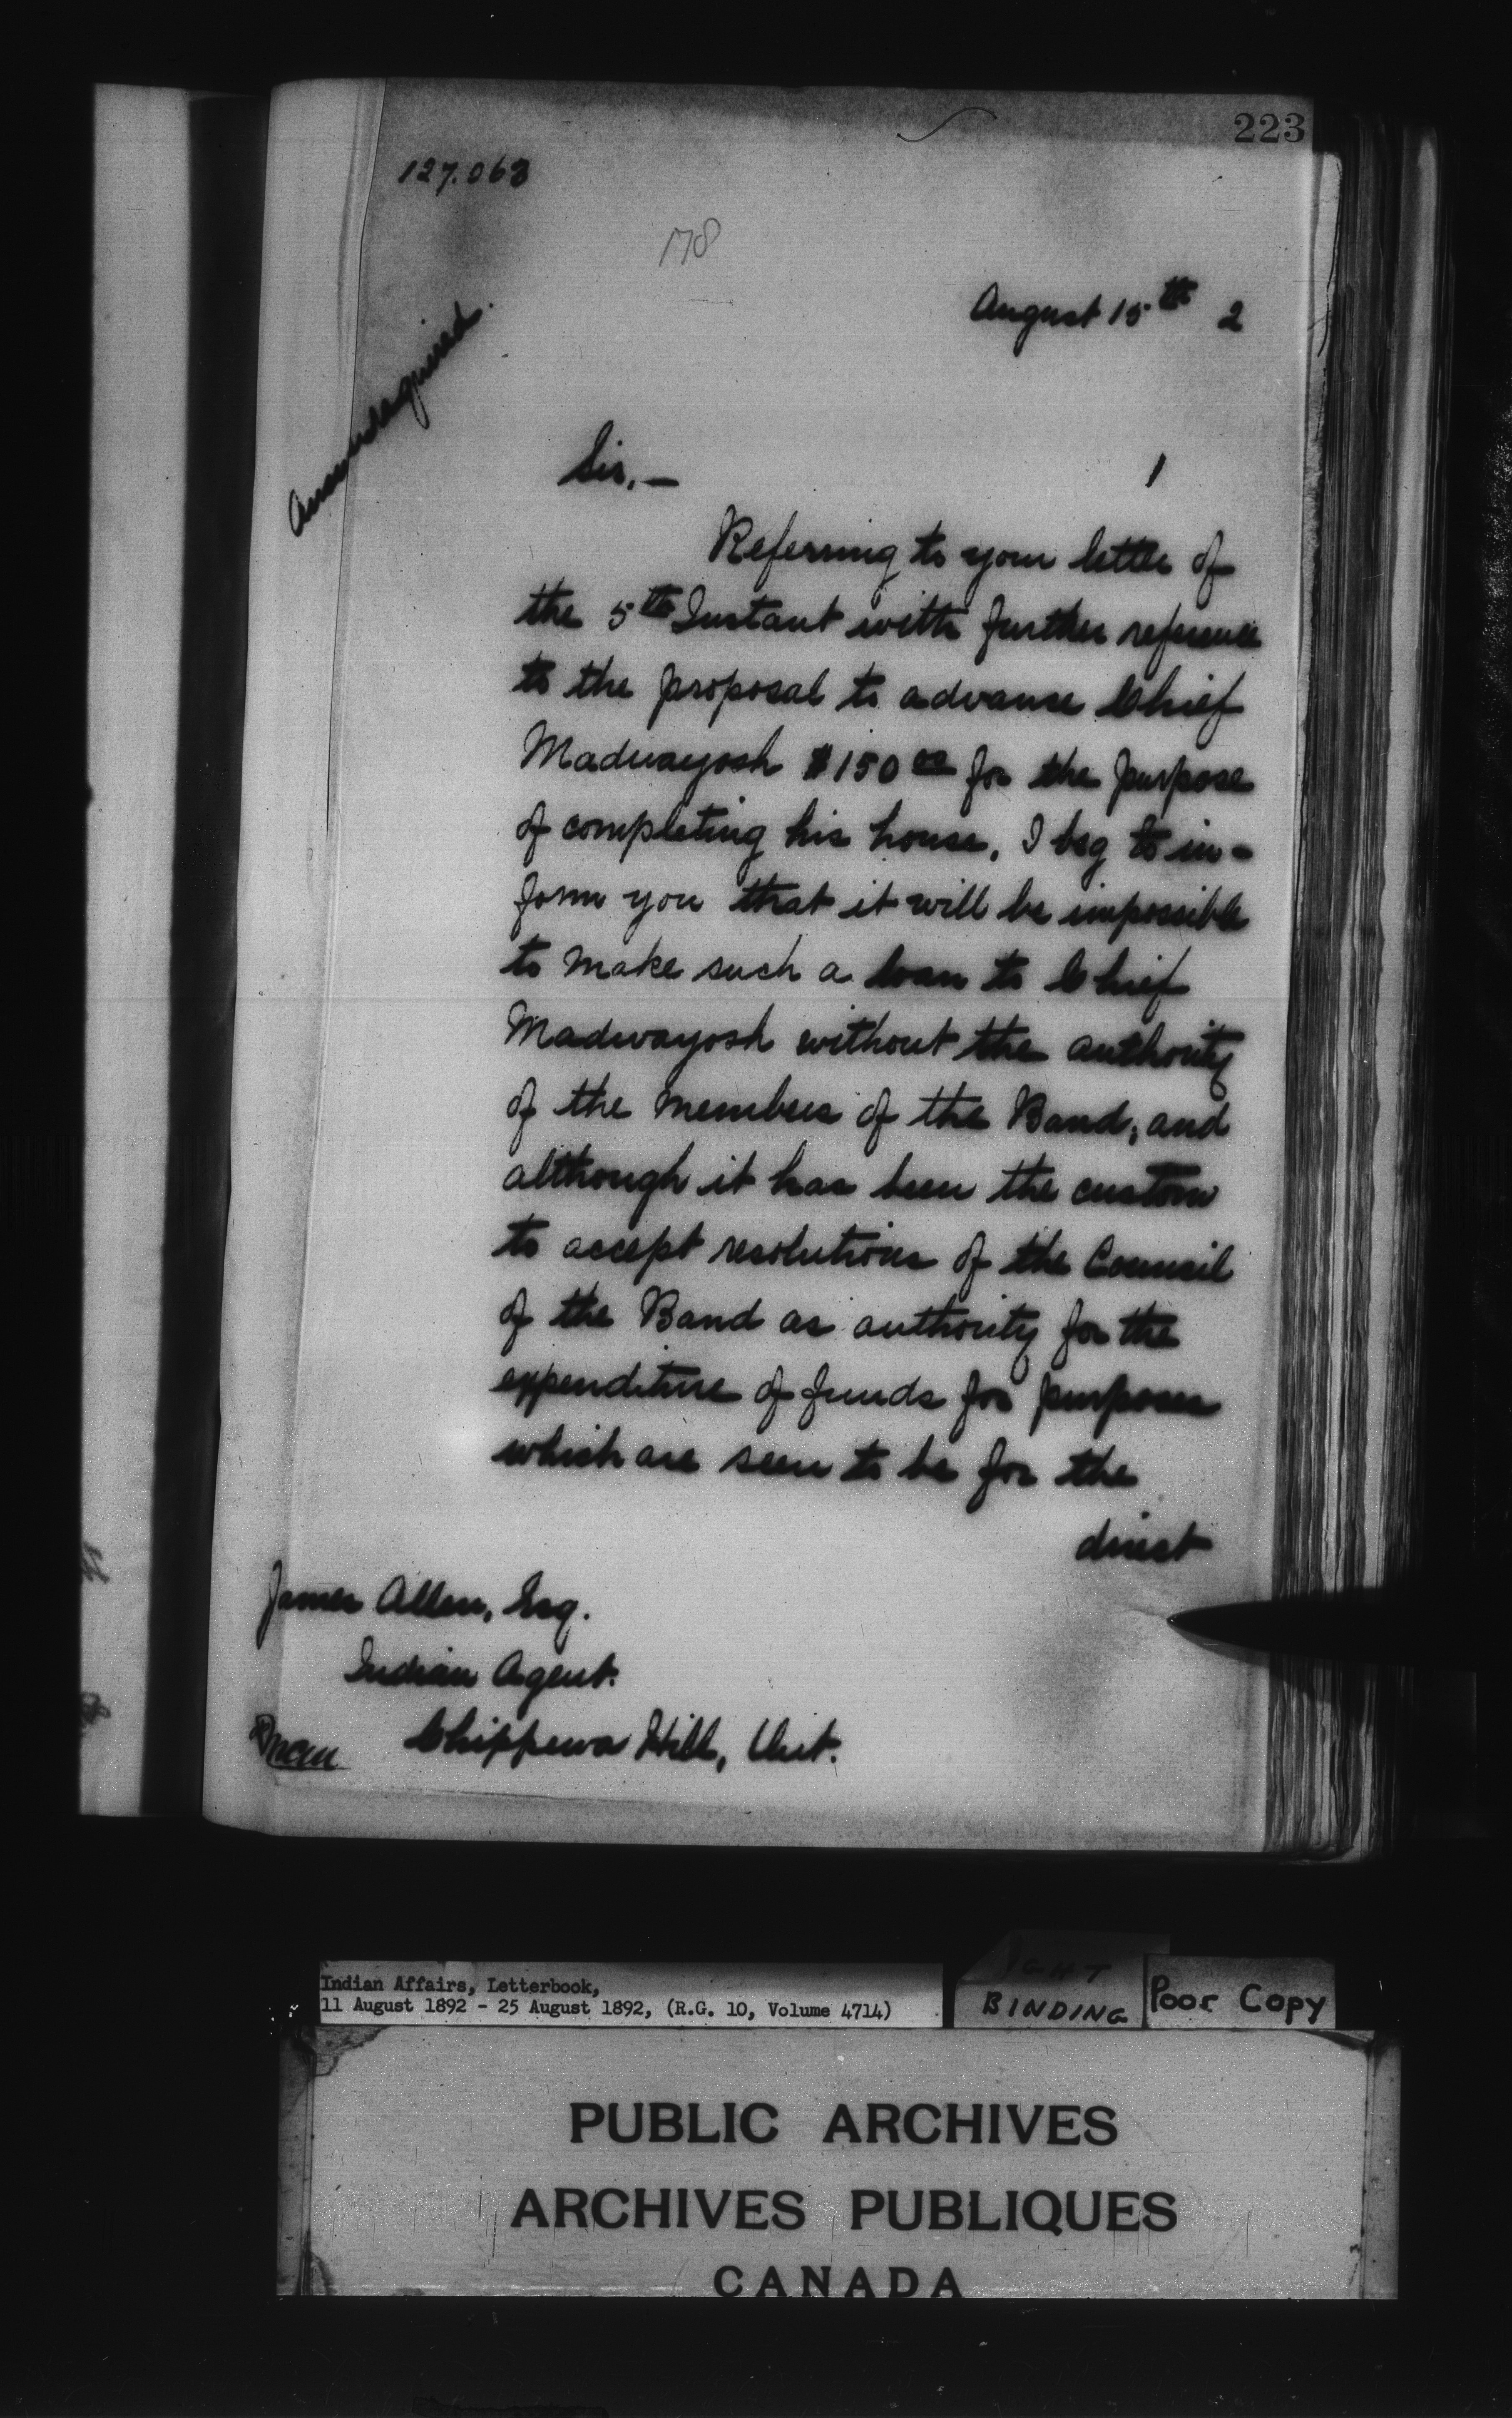 223
127.063
178
August 15th 2
Sir,—
Referring to your letter of
the 5th Instant with further reference
to the proposal to advance Chief
Madwayosh $150 00 for the purpose
of completing his house, I beg to in-
form you that it will be impossible
to make such a loan to Chief
Madwayosh without the authority
of the members of the Band, and
although it has been the custom
to accept resolutions of the Council
of the Band as authority for the
expenditure of funds for purposes
which are seen to be for the
direct
James Allen, Esq.
Indian Agent.
Chippewa Hill, Ont.
Indian Affairs, Letterbook,
11 August 1892 - 25 August 1892, (R.G. 10, Volume 4714)
BINDING
Poor Copy
PUBLIC ARCHIVES
ARCHIVES PUBLIQUES
CANADA